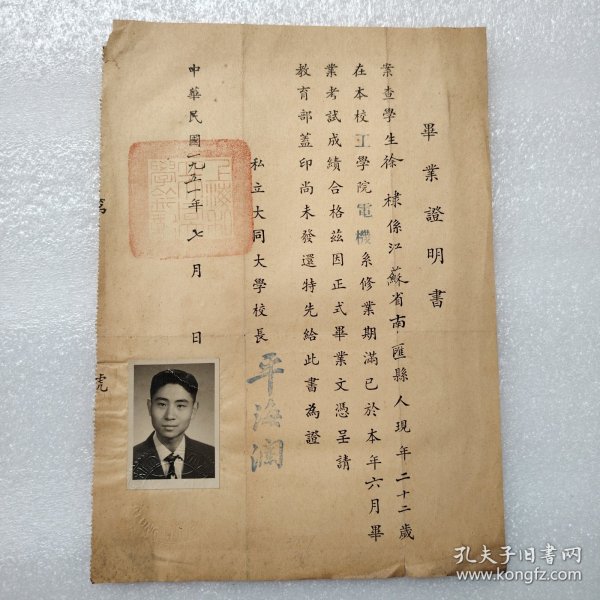 畢業證明書
案查學生徐棣係江蘇省南匯縣人現年二十二歲
在本校工學院電機系修業期滿已於本年六月畢
業考試成績合格茲因正式畢業文憑呈請
教育部蓋印尚未發還特先給此書為證
私立大同大學校長
平海瀾
中華民國一九五一年七月 日
第 號
孔夫子旧书网
www.kongfz.com